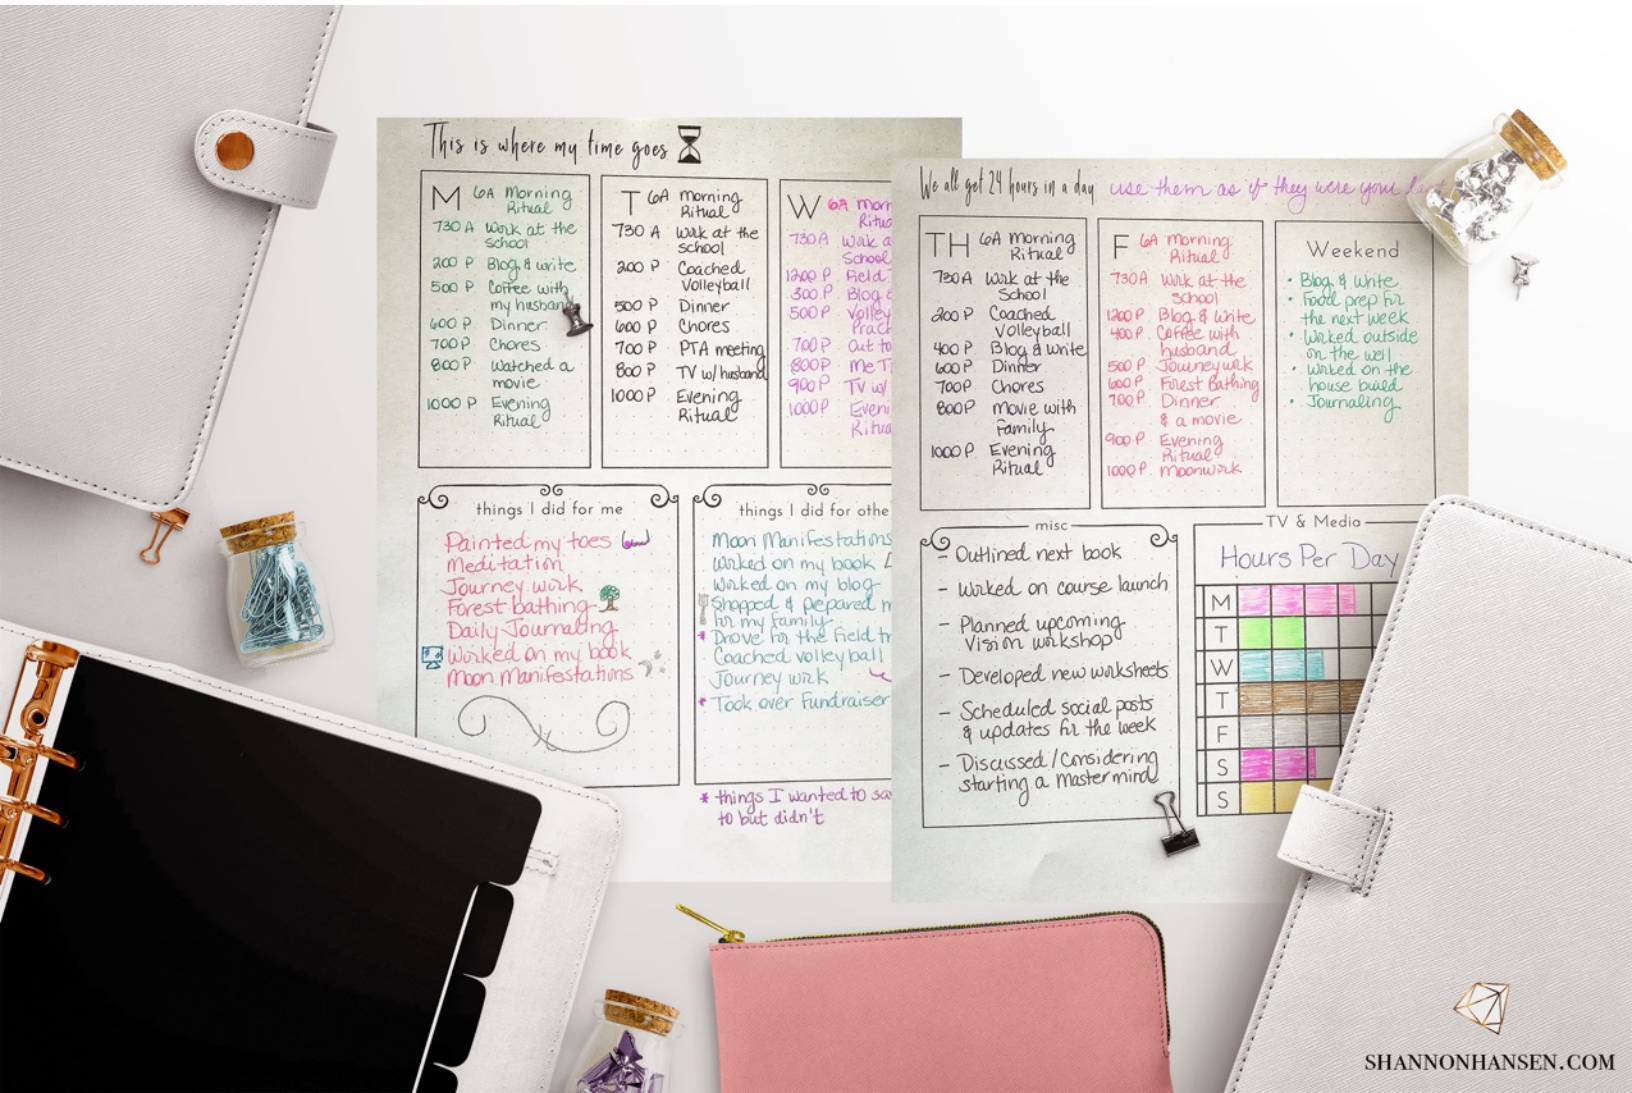 This is where my time goes
M 6A Morning
Ritual
730 A Work at the
school
200 P Blog & write
500 P Coffee with
my husband
600 P Dinner
700 P Chores
800 P Watched a
movie
1000 P Evening
Ritual
T 6A Morning
Ritual
730 A Work at the
school
200 P Coached
Volleyball
500 P Dinner
600 P Chores
700 P PTA meeting
800 P TV w/ husband
1000 P Evening
Ritual
W 6A Morn
Ritua
730A Work a
School
1200 P Field
300 P Blog &
500 P Volley
Prach
700 P Out to
800 P Me T
900 P TV w/
1000 P Eveni
Ritua
things I did for me
Painted my toes
Meditation
Journey work
Forest bathing
Daily Journaling
Worked on my book
Moon Manifestations
things I did for othe
Moon Manifestations
Worked on my book
Worked on my blog
Shopped & prepared m
for my family
* Drove for the field tr
Coached volleyball
Journey work
* Took over Fundraiser
* things I wanted to sa
to but didn't
We all get 24 hours in a day use them as if they were your last
TH 6A Morning
Ritual
730A Work at the
School
200 P Coached
Volleyball
400 P Blog & write
600 P Dinner
700P Chores
800P Movie with
Family
1000 P Evening
Ritual
F 6A Morning
Ritual
730A Work at the
school
1200 P Blog & write
400P Coffee with
husband
500 P Journeywork
600 P Forest Bathing
700 P Dinner
& a movie
900 P Evening
Ritual
1000 P Moonwork
Weekend
• Blog & write
• Food prep for
the next week
• Worked outside
on the well
• Worked on the
house build
• Journaling
misc
- Outlined next book
- Worked on course launch
- Planned upcoming
Vision workshop
- Developed new worksheets
- Scheduled social posts
& updates for the week
- Discussed/Considering
starting a mastermind
TV & Media
Hours Per Day
M
T
W
T
F
S
S
SHANNONHANSEN.COM